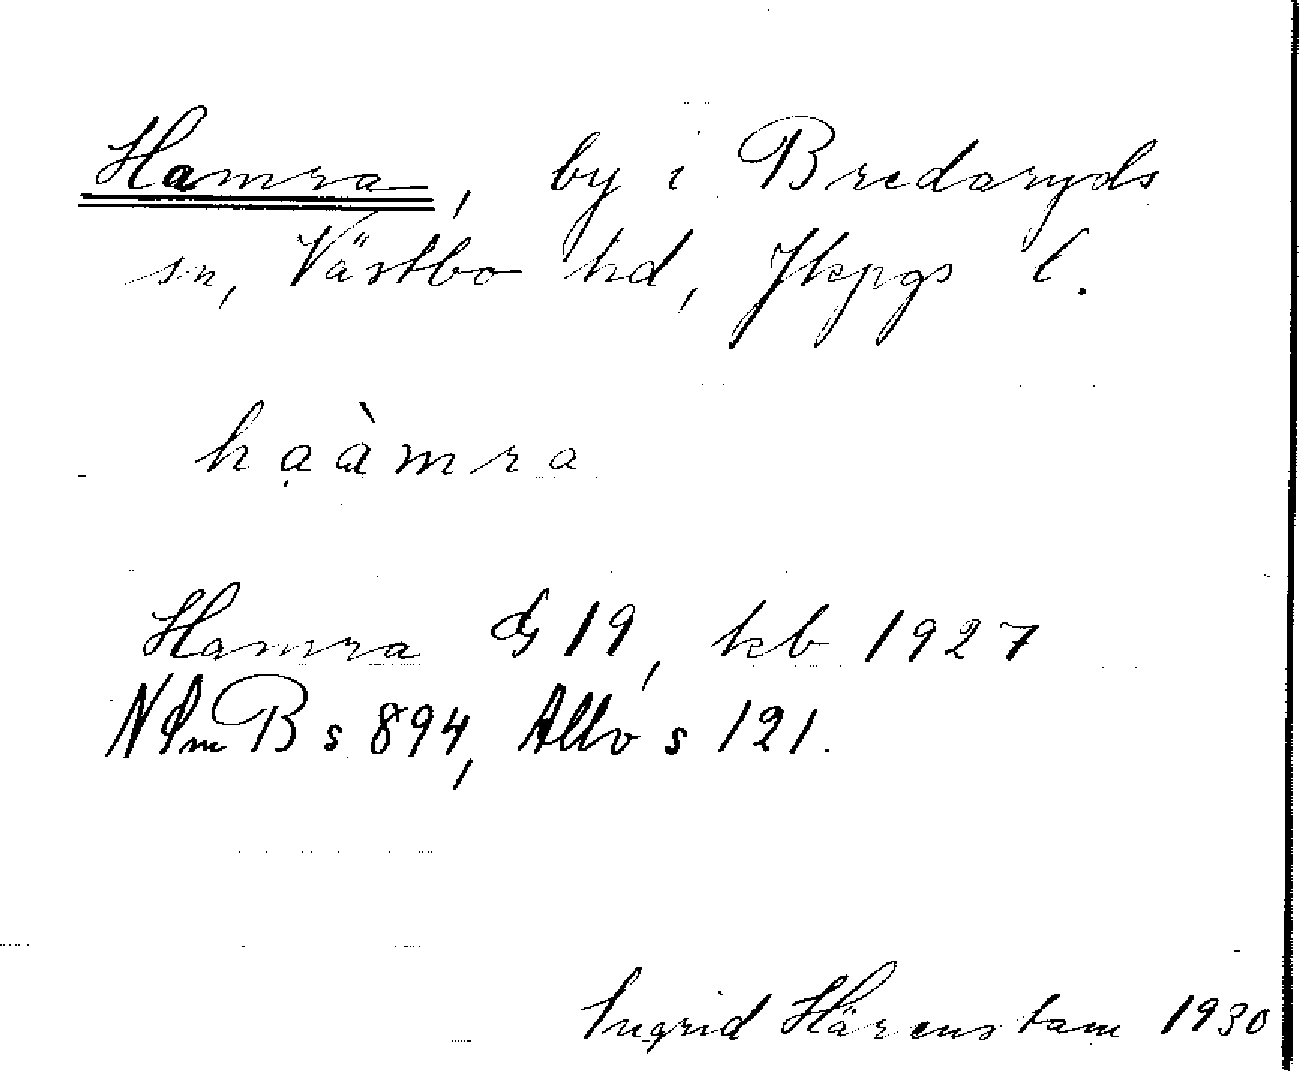 Hamra, by i Bredaryds
sn, Västbo hd, Jkpgs l.
hạàmra
Hamra G 19, kb 1927
B s 894, Allvo s 121.
Ingrid Härenstam 1930